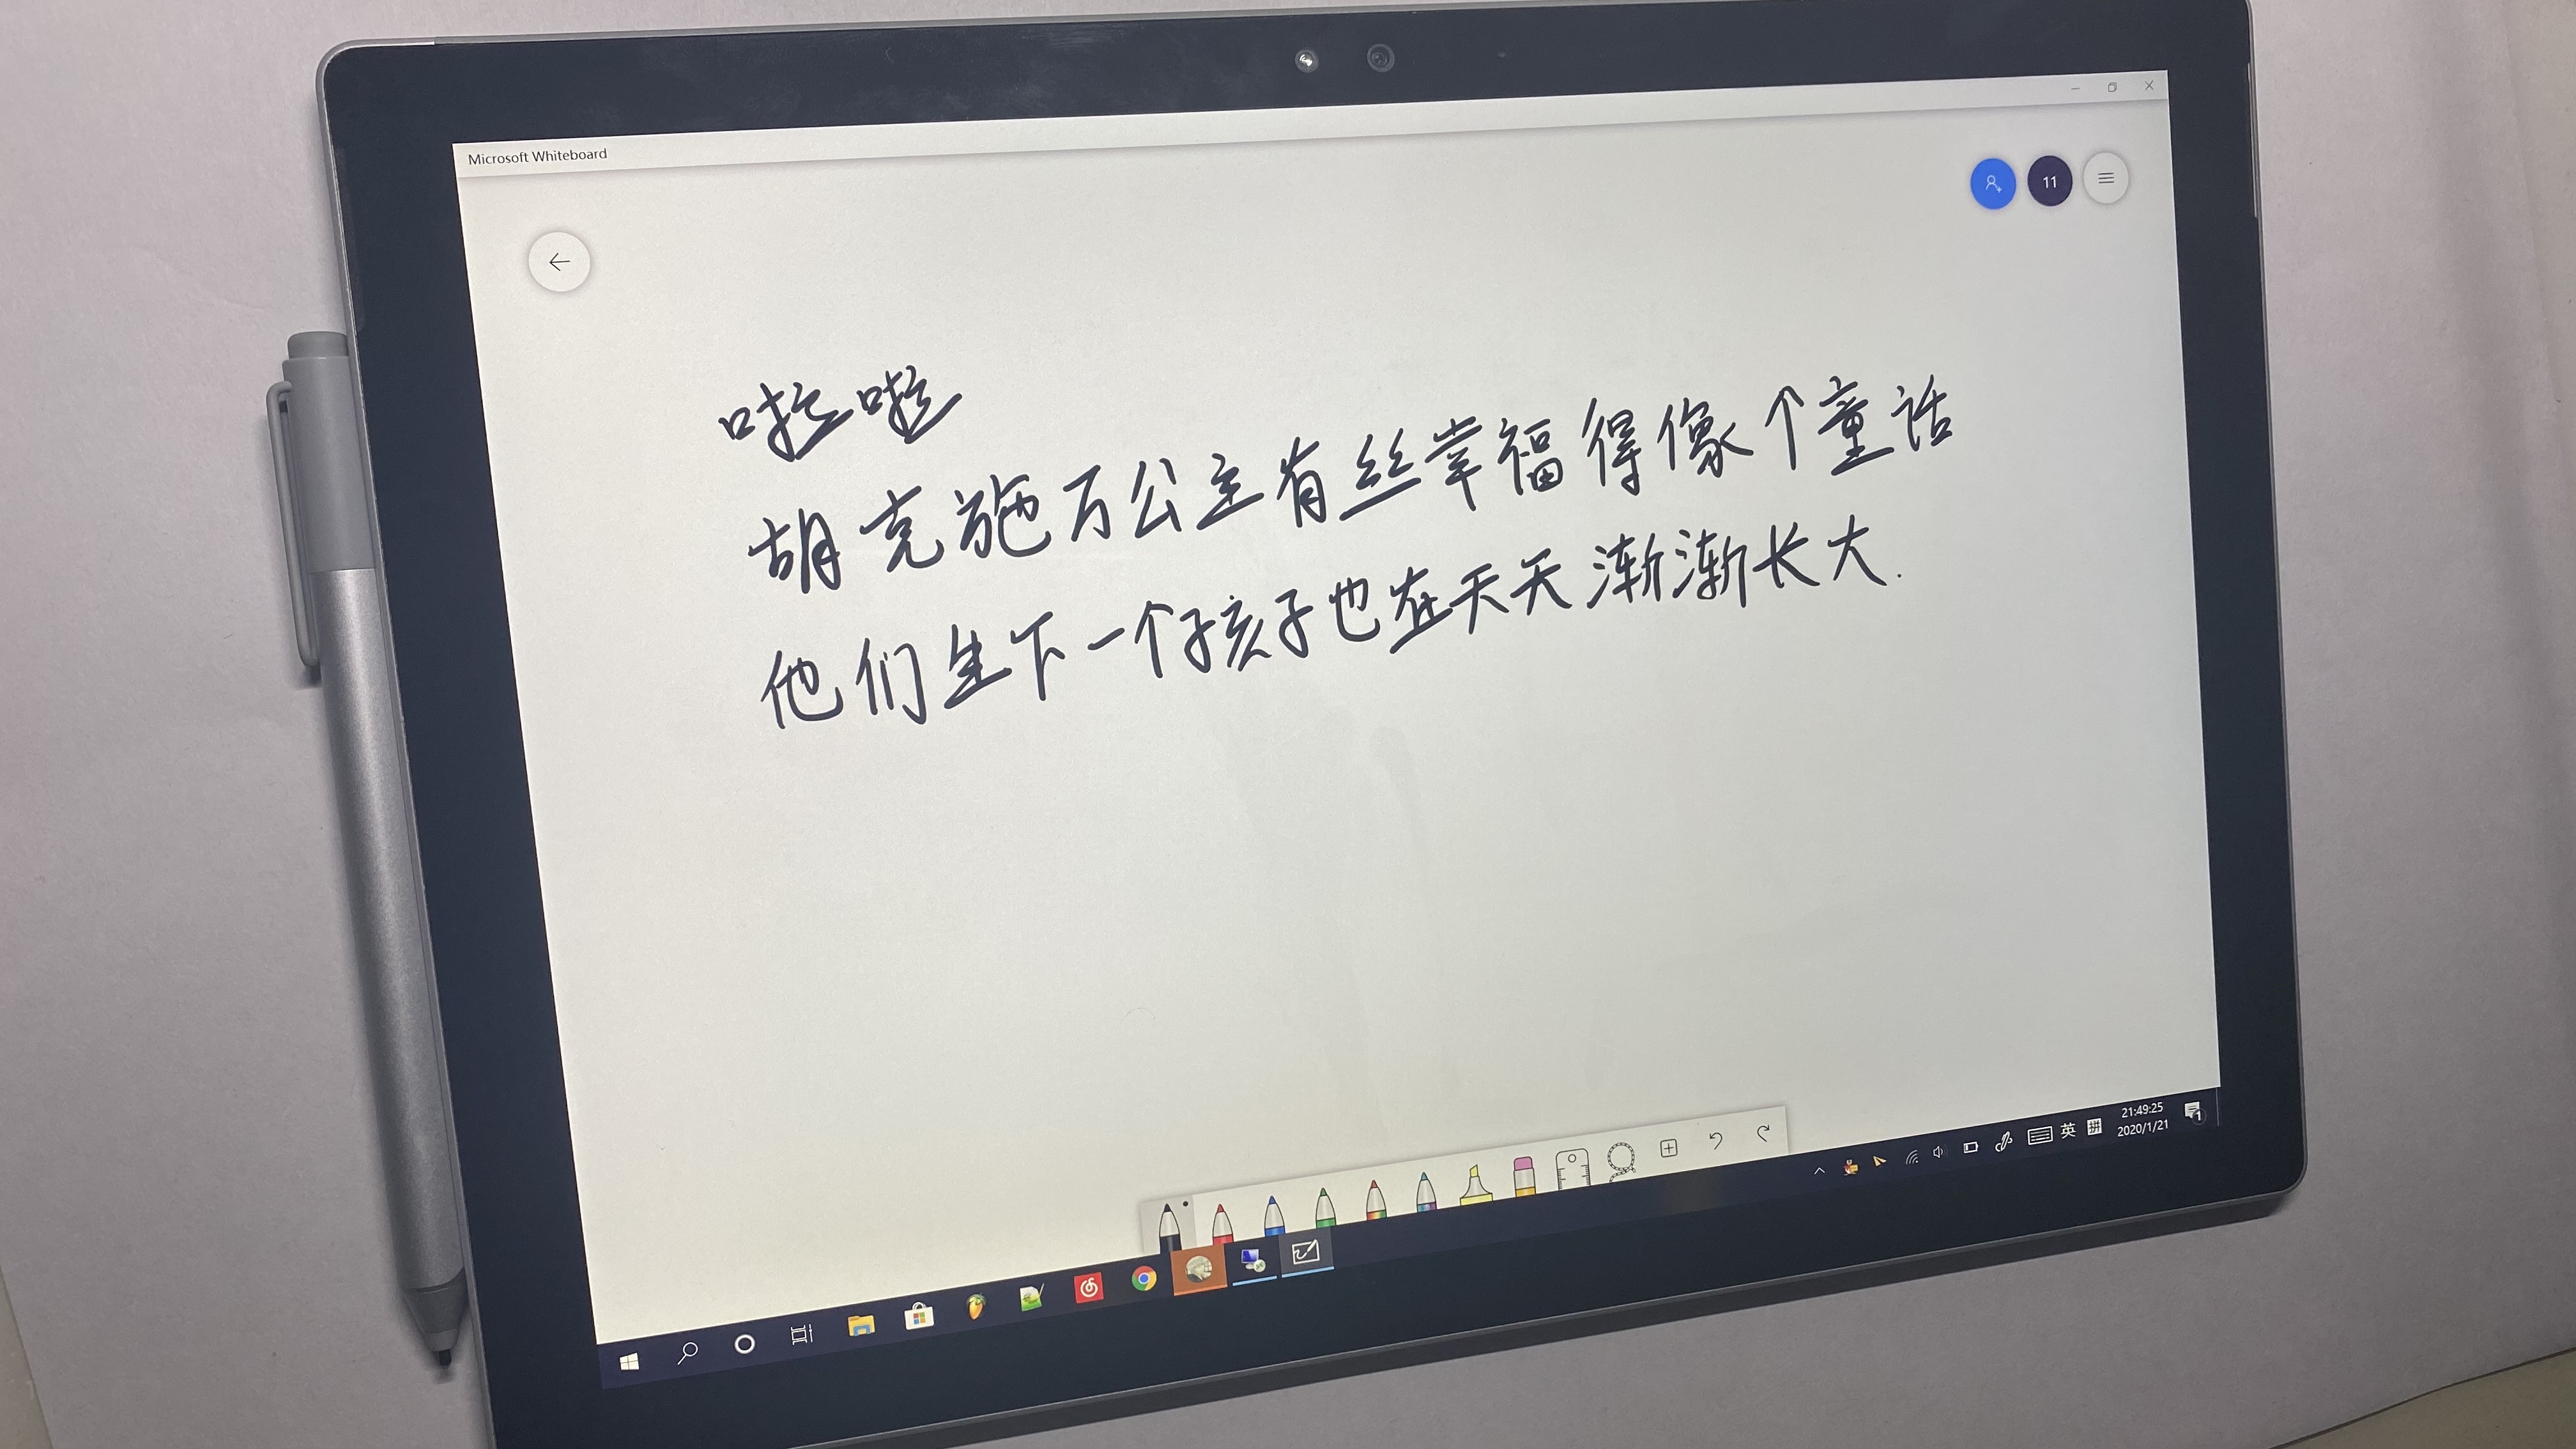 Microsoft Whiteboard
11
啦啦
胡克施万公主有丝幸福得像个童话
他们生下一个孩子也在天天渐渐长大.
21:49:25
英 拼
2020/1/21
1